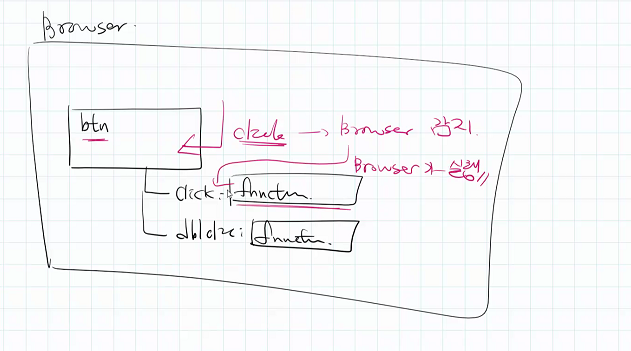 Browser.
btn
click → Browser 감지.
Browser가 실행
click: function.
dblclic: function.